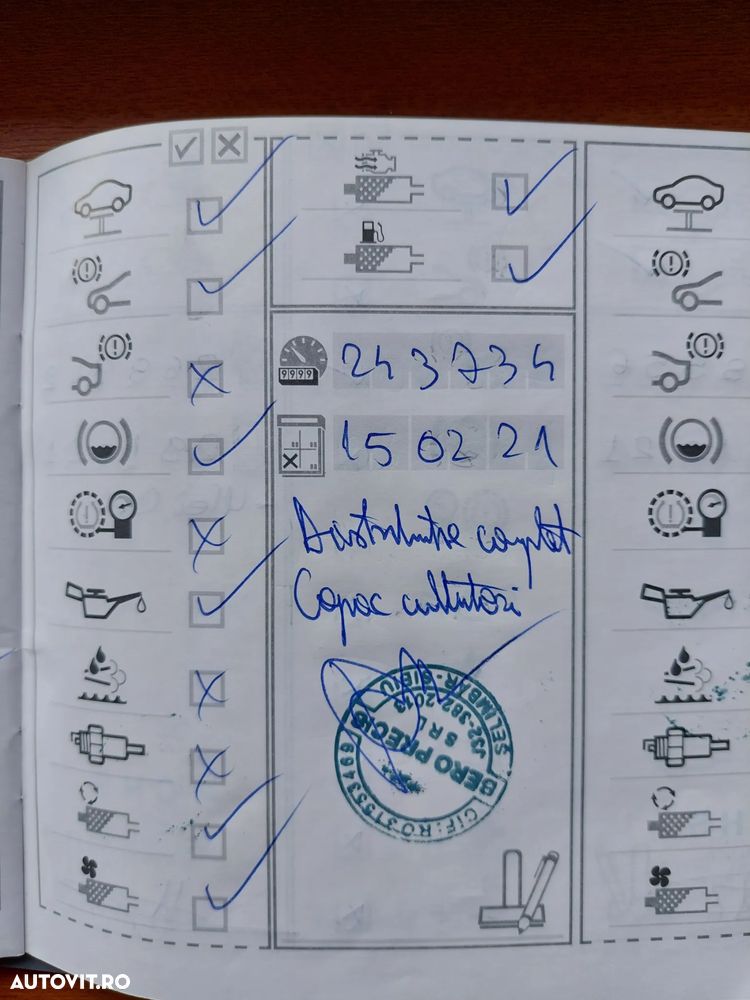 243734
9999
15 02 21
Distributie complet
Capac culbutori
ȘELIMBĂR - SIBIU
J32-382/2013
S R L
BERO PRECIS
CIF: RO31553469
AUTOVIT.RO